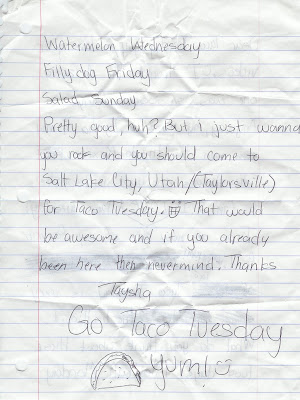 Watermelon Wednesday
Filly dog Friday
Salad Sunday
Pretty good, huh? But i just wanna
you rock and you should come to
Salt Lake City, Utah/(Taylorsville)
for Taco Tuesday. That would
be awesome and if you already
been here then nevermind. Thanks
Taysha
Go Taco Tuesday
Yum!